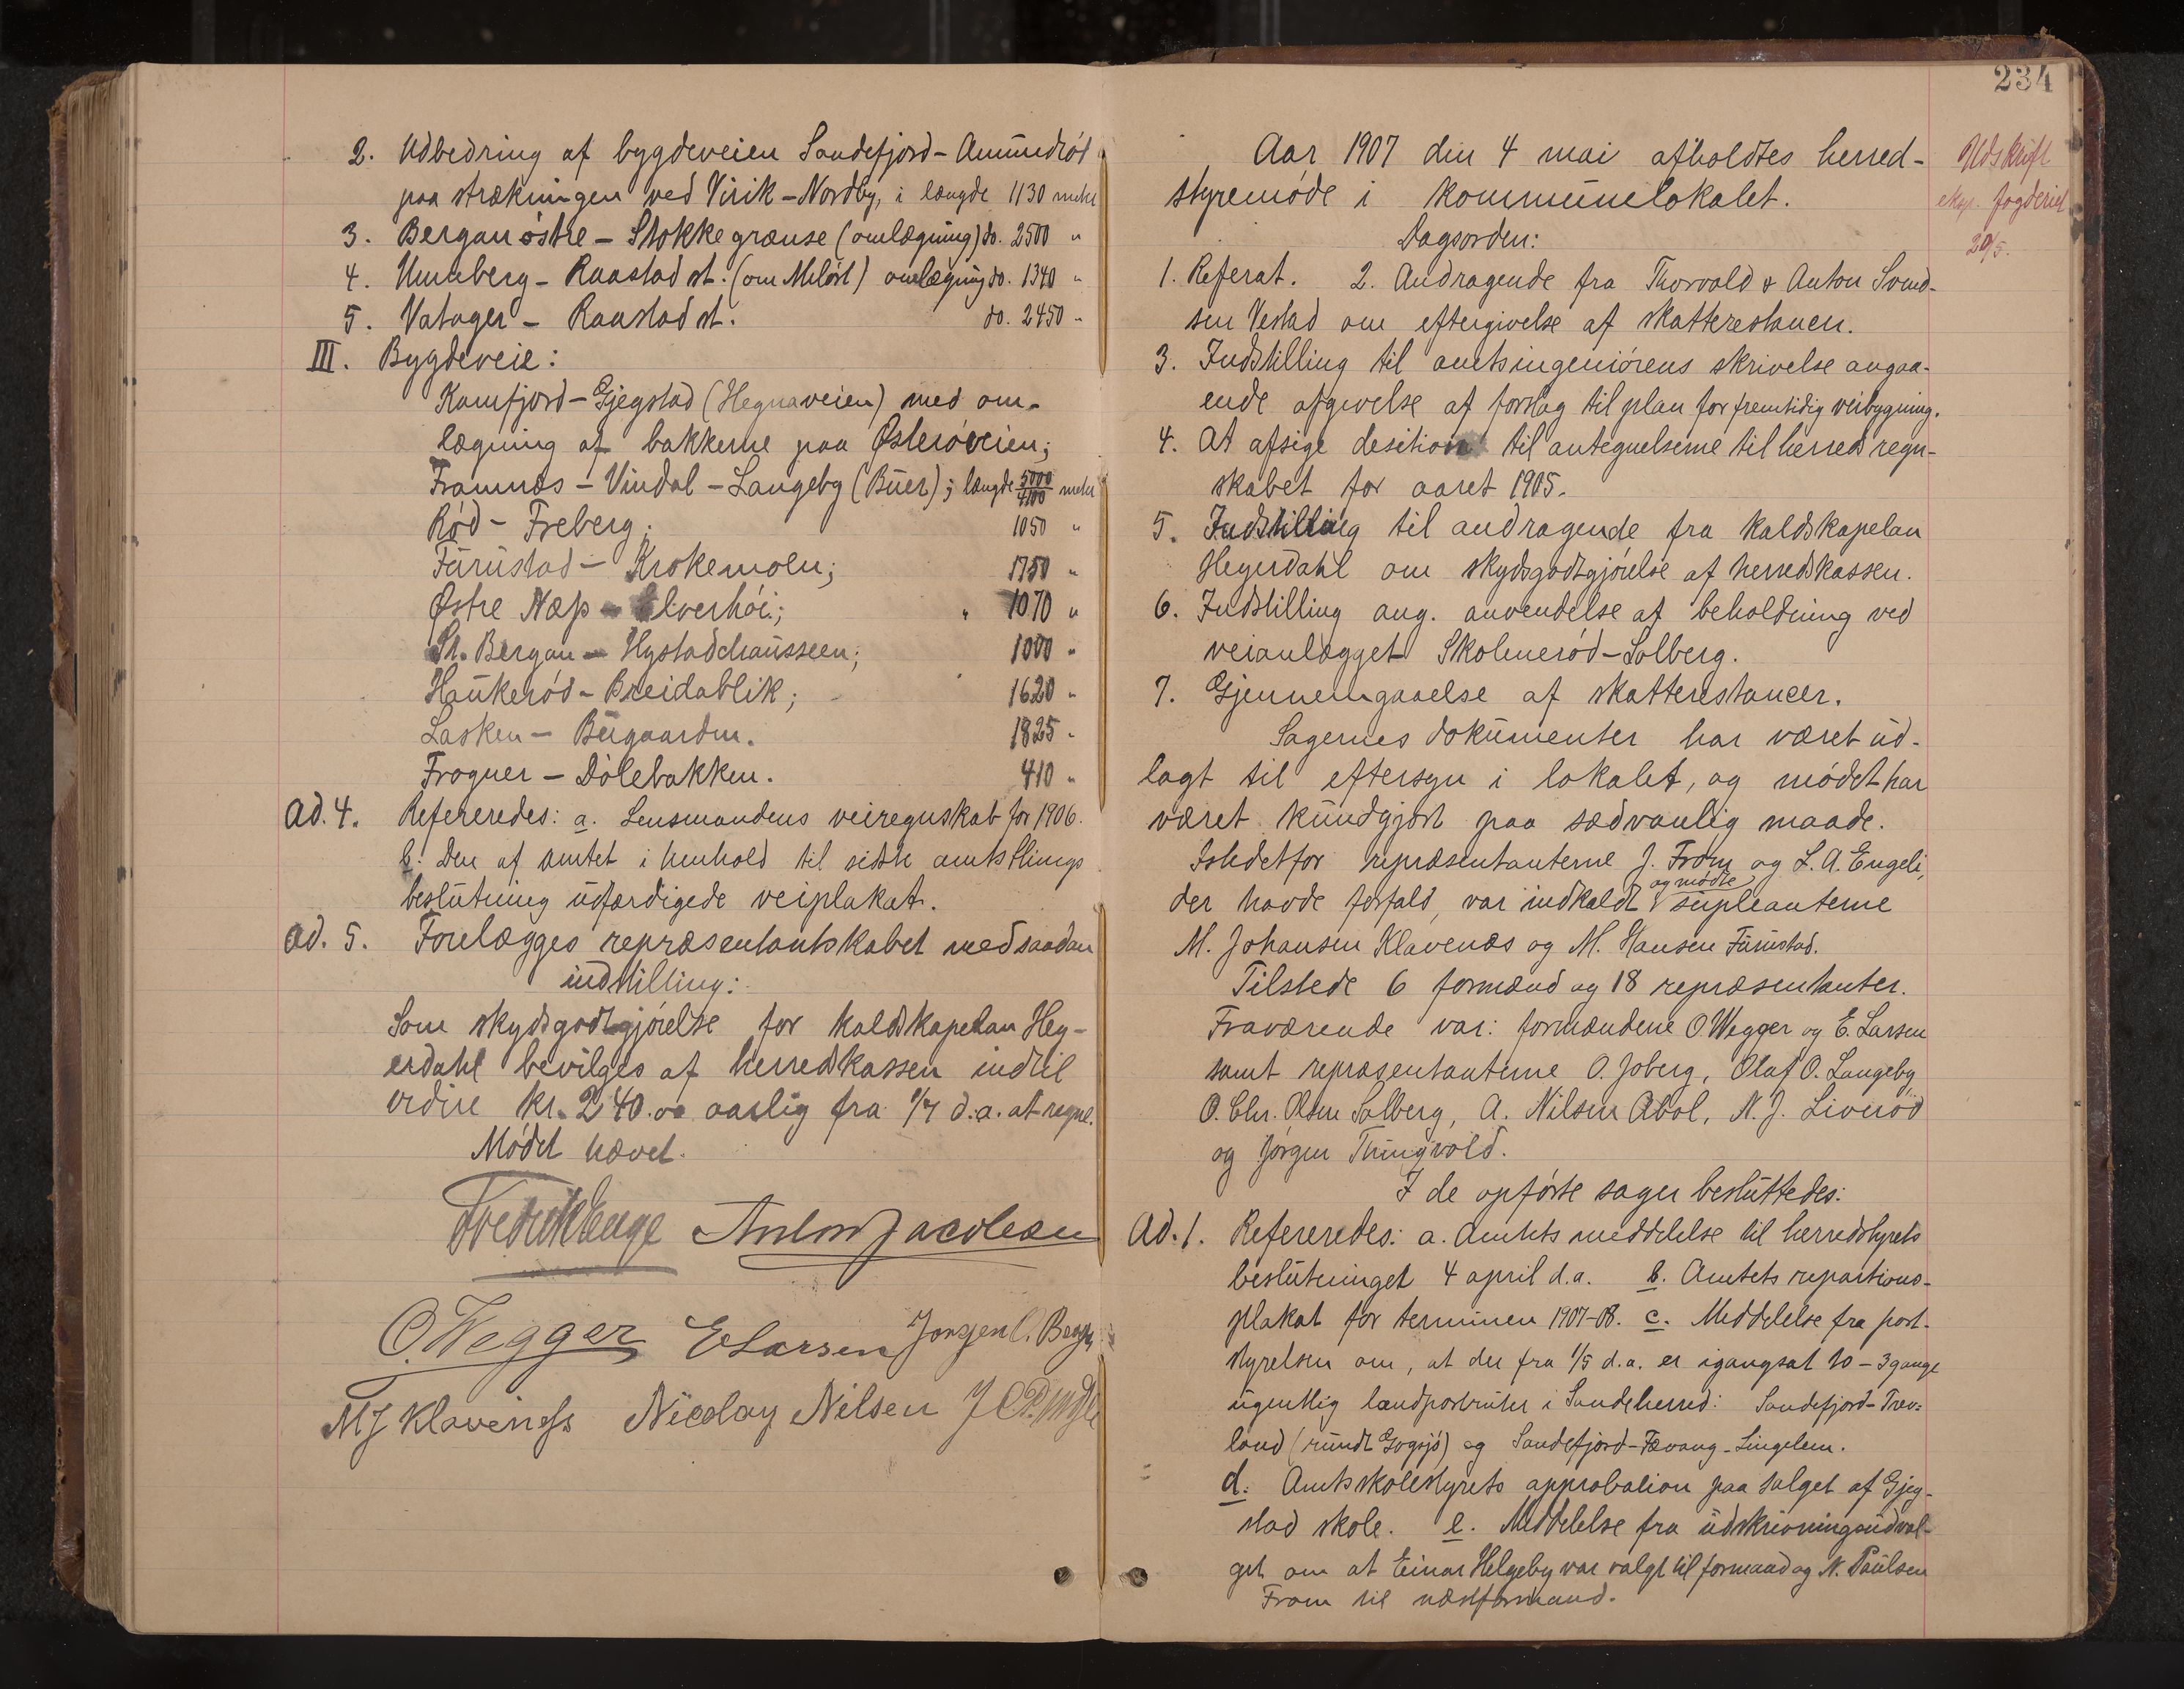 2. Udbedring af bygdeveien Sandefjord - Amundrød
paa strækningen ved Virik - Nordby, i længde 1130 meter
3. Bergan østre - Stokke grænse (omlægning) do. 2500 "
4. Unneberg - Raastad st. (om Meløst) omlægning do. 1340 "
5. Vatager - Raastad st. do. 2450 "
III. Bygdeveie:
Kamfjord - Gjegstad (Hegnaveien) med om-
lægning af bakkerne paa Østerøveien;
Framnæs - Vindal - Langeby (Buer); længde 5000/4100 meter
Rød - Freberg; 1050 "
Furustad - Krokemoen; 1750 "
Østre Næs - Elverhøi; " 1070 "
St. Bergan - Hystadchausseen; 1000 "
Haukerød - Breidablik; 1620 "
Lasken - Bugaarden. 1825 "
Frogner - Dølebakken. 410 "
Ad. 4. Refereredes: a. Lensmandens veiregnskab for 1906.
b. Den af amtet i henhold til sidste amtstings
beslutning udfærdigede veiplakat.
Ad. 5. Forelægges repræsentantskabet med saadan
indstilling:
Som skydsgodtgjørelse for kaldskapelan Hey-
erdahl bevilges af herredskassen indtil
videre kr. 240.00 aarlig fra 1/4 d.a. at regne.
Mødet hævet.
Fredrik Lange Anton Jacobsen
O. Wegger E Larsen Jørgen C. Berg
M J Klavenæss Nicolay Nilsen
234
Aar 1907 den 4 mai afholdtes herred-
styremøde i kommunelokalet.
Udskrift
eksp. fogderiet
20/5.
Dagsorden:
1. Referat. 2. Andragende fra Thorvald & Anton Svend-
sen Vestad om eftergivelse af skatterestancer.
3. Indstilling til amtsingeniørens skrivelse angaa-
ende afgivelse af forslag til plan for fremtidig veibygning.
4. At afsige desition til antegnelserne til herredsregn-
skabet for aaret 1905.
5. Indstilling til andragende fra kaldskapelan
Heyerdahl om skydsgodtgjørelse af herredskassen.
6. Indstilling ang. anvendelse af beholdning ved
veianlægget Skolmerød - Solberg.
7. Gjennemgaaelse af skatterestancer.
Sagernes dokumenter har været ud-
lagt til eftersyn i lokalet, og mødet har
været kundgjort paa sædvanlig maade.
Istedetfor repræsentanterne J. From og L. A. Engeli,
der havde forfald, var indkaldt og mødte supleanterne
M. Johansen Klavenæs og M. Hansen Furustad.
Tilstede 6 formænd og 18 repræsentanter.
Fraværende var: formændene O. Wegger og E. Larsen
samt repræsentanterne O. Joberg, Olaf O. Langeby,
O. Chr. Olsen Solberg, A. Nilsen Abol, N. J. Liverød
og Jørgen Thingvold.
I de opførte sager besluttedes:
Ad. 1. Refereredes: a. Amtets meddelelse til herredstyrets
beslutninget 4 april d.a. b. Amtets repartions-
plakat for terminen 1907-08. c. Meddelelse fra post-
styrelsen om, at der fra 1/5 d.a. er igangsat to - 3 gange
ugentlig landpostruter i Sandeherred: Sandefjord - Trev-
land (rundt Gogsjø) og Sandefjord - Fevang - Lingelem.
d. Amtsskolestyrets approbation paa salget af Gjeg-
stad skole. e. Meddelelse fra udskrivningsudval-
get om at Einar Helgeby var valgt til formand og N. Paulsen
From til næstformand.